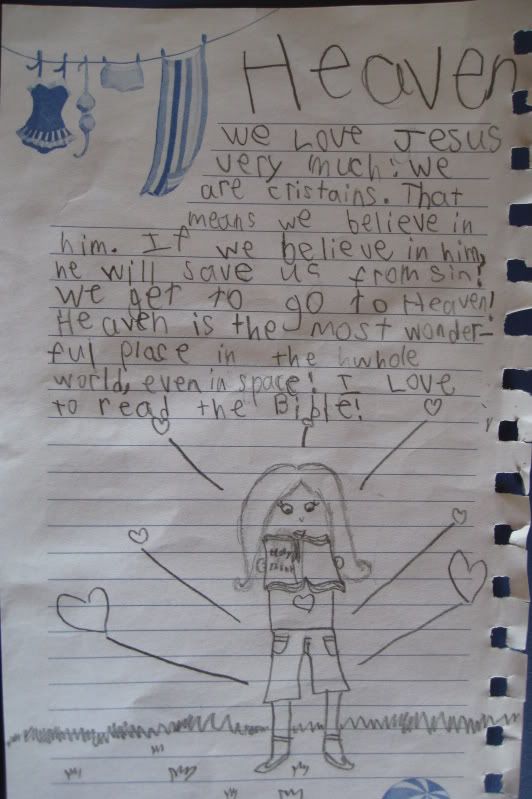 Heaven
We Love Jesus
very much. We
are cristains. That
means we believe in
him. If we believe in him,
he will save us from sin!
We get to go to Heaven!
Heaven is the most wonder-
ful place in the hwhole
world, even in space! I Love
to read the Bible!
Holy